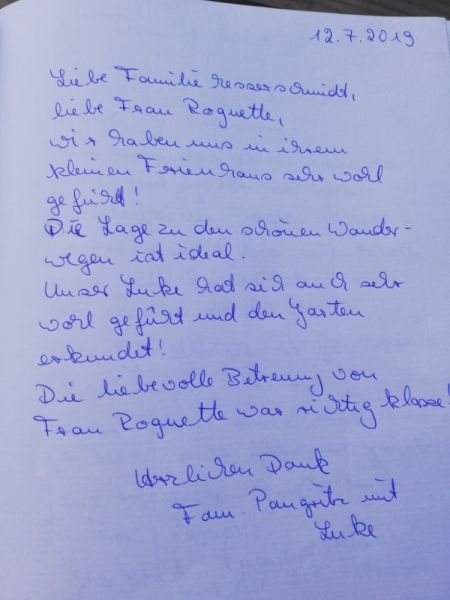 12.7.2019
Liebe Familie Messerschmidt,
liebe Frau Roquette,
wir haben uns in ihrem
kleinen Ferienhaus sehr wohl
gefühlt!
Die Lage zu den schönen Wander-
wegen ist ideal.
Unser Luke hat sich auch sehr
wohl gefühlt und den Garten
erkundet!
Die liebevolle Betreuung von
Frau Roquette war richtig klasse!
Herzlichen Dank
Fam. Pangritz mit
Luke